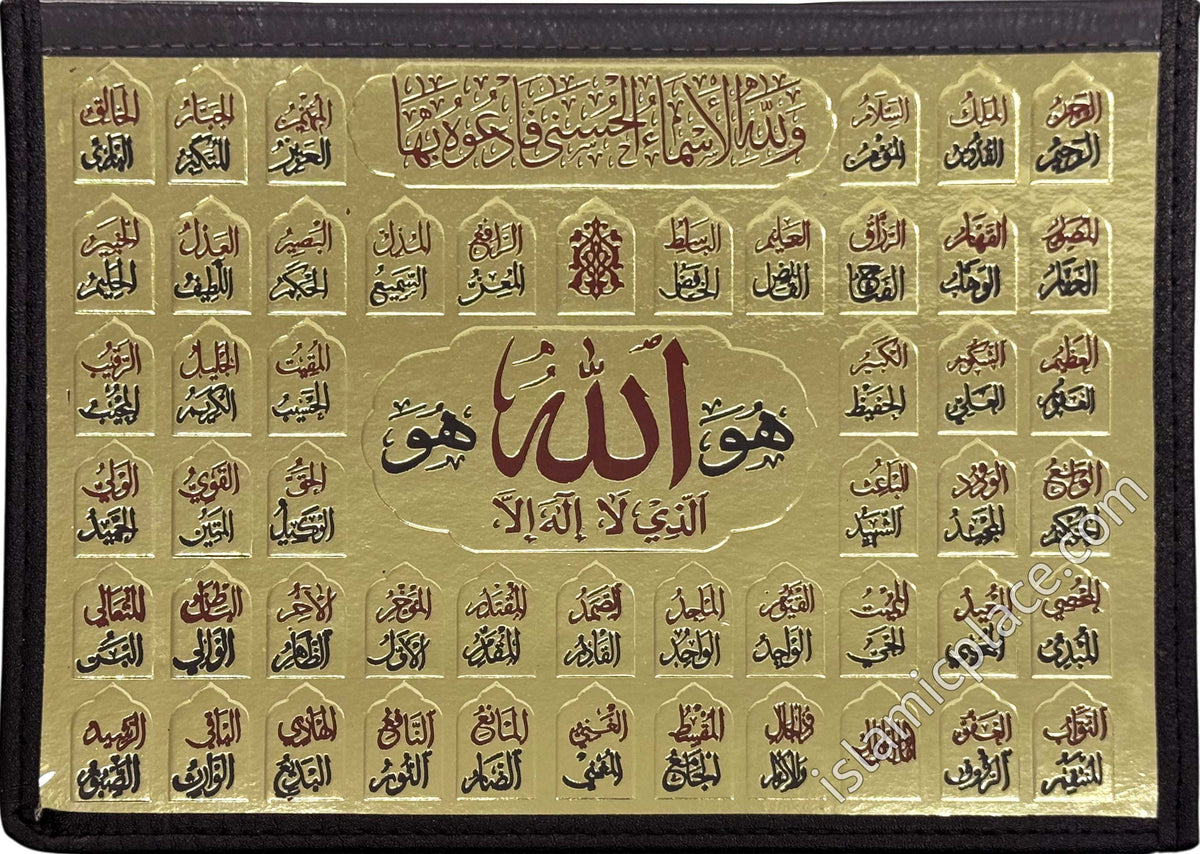 وَلِلَّهِ الْأَسْمَاءُ الْحُسْنَى فَادْعُوهُ بِهَا
الرحمن الملك السلام المهيمن الجبار الخالق
الرحيم القدوس المؤمن العزيز المتكبر البارئ
المصور القهار الرزاق العليم الباسط الرافع المذل البصير العدل الخبير
الغفار الوهاب الفتاح القابض الخافض المعز السميع الحكم اللطيف الحليم
هُوَ اللّٰه هُوَ
الَّذِيْ لَا إِلٰهَ إِلَّا
العظيم الشكور الكبير المقيت الجليل الرقيب
العلي الحفيظ الحسيب الكريم المجيب
الواسع الودود الباعث الحق القوي الولي
الحكيم المجيد الشهيد الوكيل المتين الحميد
المحصي المعيد المميت القيوم الماجد الصمد المقتدر المؤخر الآخر الباطن المتعالي
المبدئ المحيي الحي الواجد الواحد القادر المقدم الأول الظاهر الوالي
التواب العفو مالك الملك ذو الجلال المقسط الغني المانع النافع الهادي الباقي الرشيد
المنتقم الرؤوف والإكرام الجامع المغني الضار النور البديع الوارث الصبور
islamicplace.com